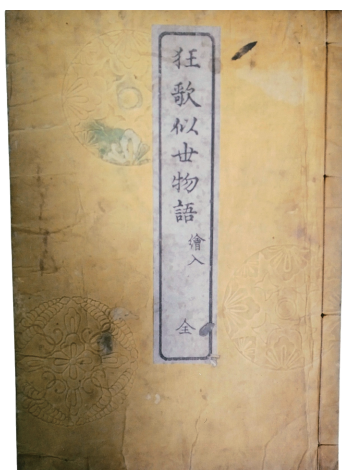 狂歌似世物語
繪入
全